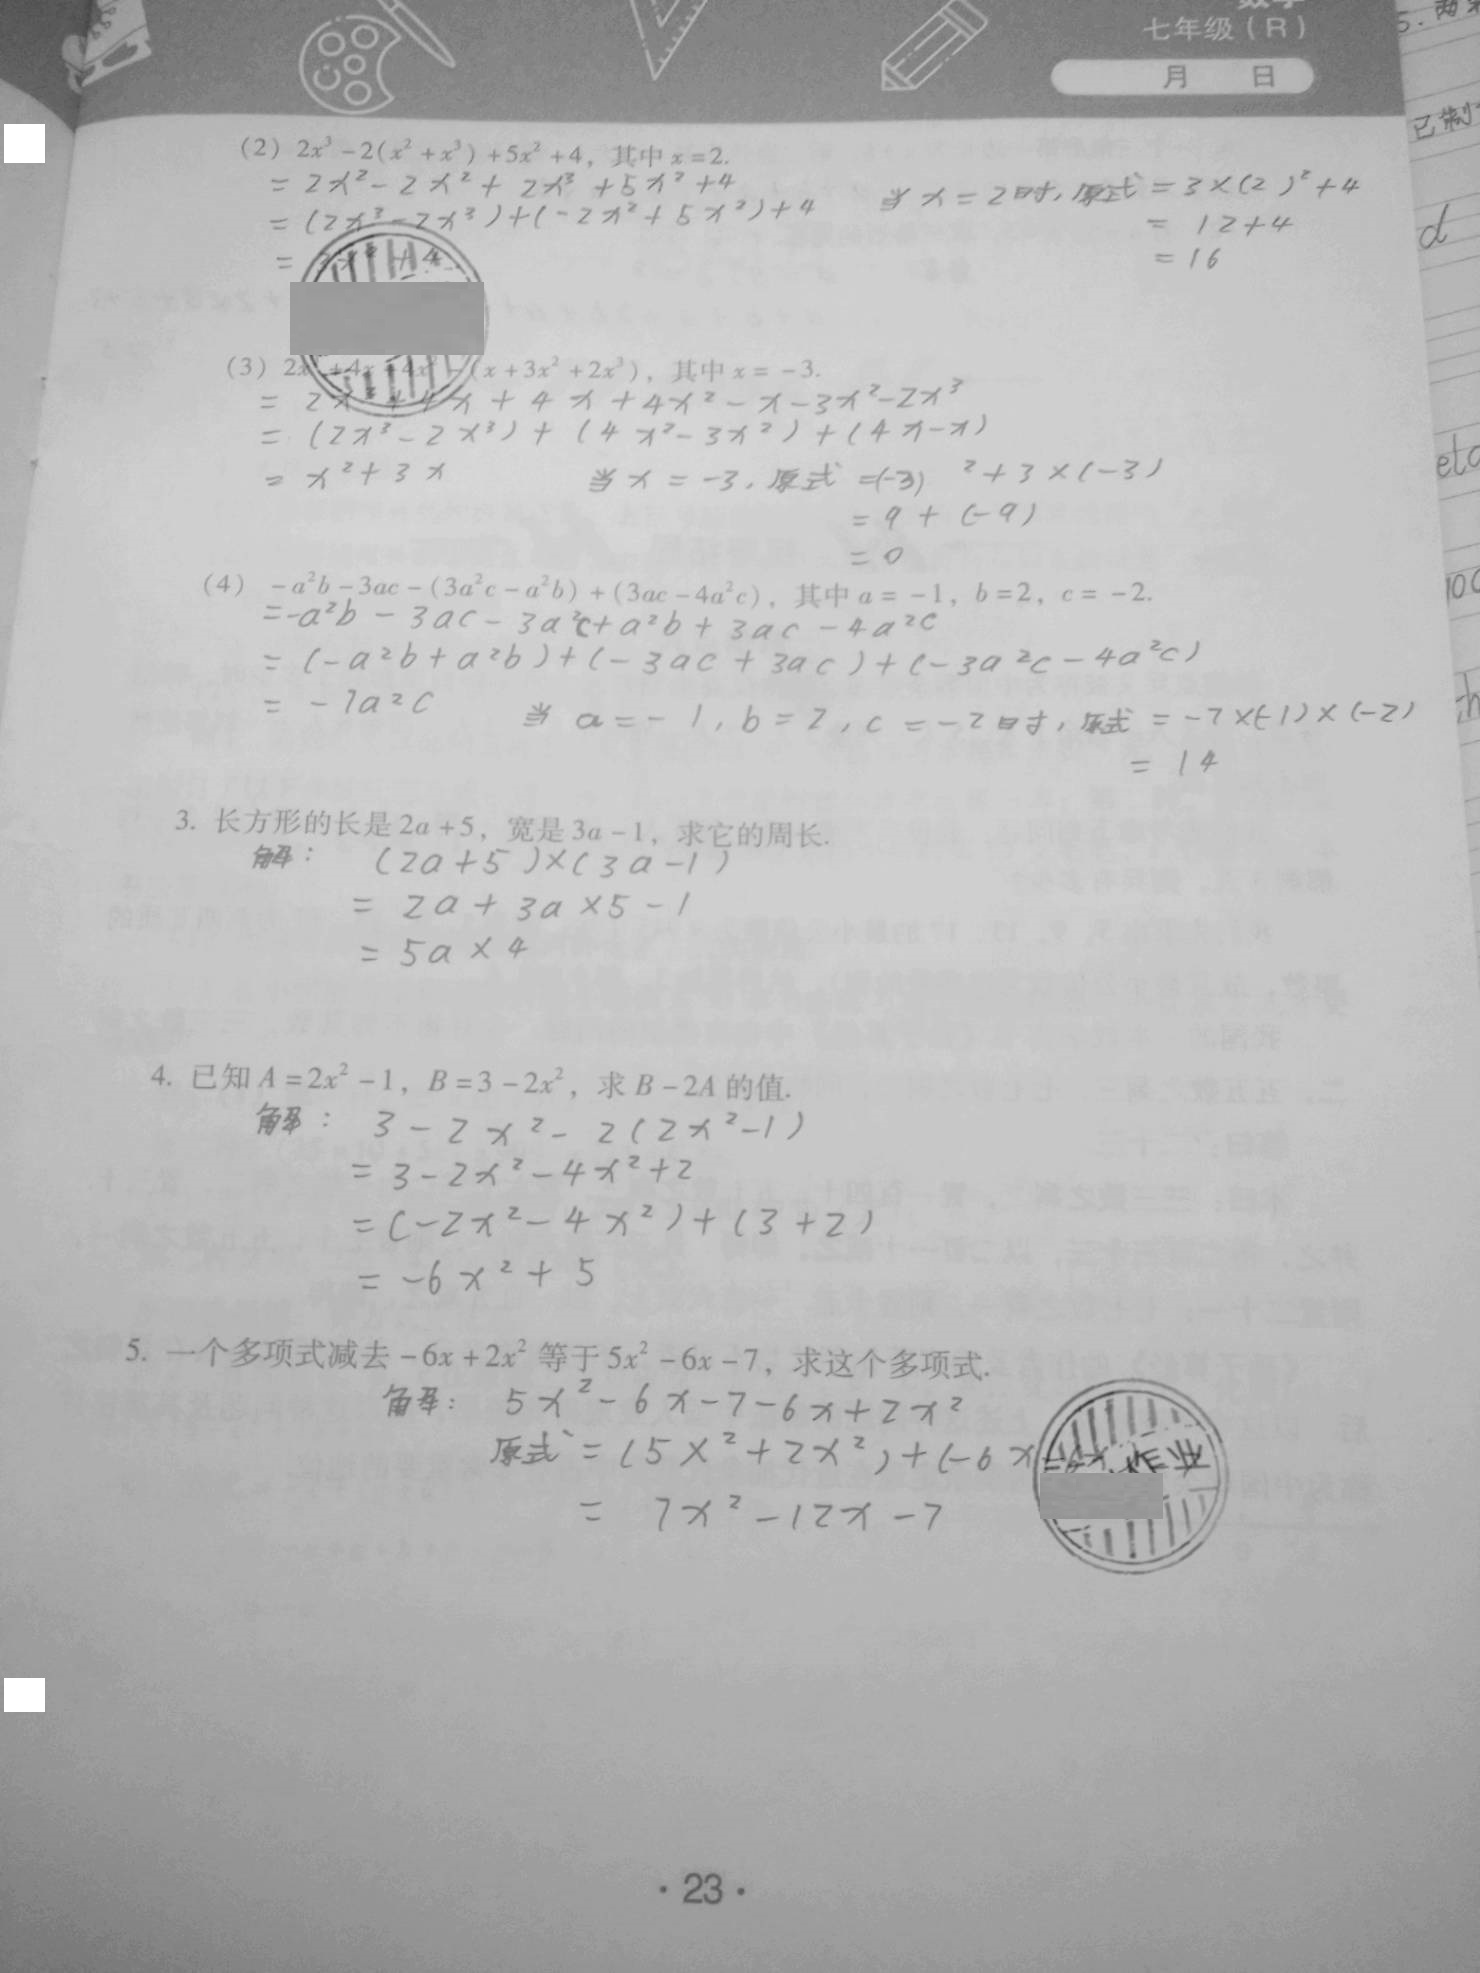 七年级(R)
月 日
(2) 2x³-2(x²+x³)+5x²+4, 其中x=2.
= 2x²-2x²+2x³+5x²+4
= (2x³-2x³)+(-2x²+5x²)+4
= 3x²+4
当x=2时,原式=3×(2)²+4
= 12+4
= 16
(3) 2x +4x 4x² -(x+3x²+2x³), 其中x=-3.
= 2x³+4x+4x+4x²-x-3x²-2x³
= (2x³-2x³)+(4x²-3x²)+(4x-x)
= x²+3x 当x=-3,原式=(-3)²+3×(-3)
= 9+(-9)
= 0
(4) -a²b-3ac-(3a²c-a²b)+(3ac-4a²c), 其中a=-1, b=2, c=-2.
=-a²b-3ac-3a²c+a²b+3ac-4a²c
= (-a²b+a²b)+(-3ac+3ac)+(-3a²c-4a²c)
= -7a²c 当a=-1,b=2,c=-2时,原式=-7×(-1)×(-2)
= 14
3. 长方形的长是2a+5, 宽是3a-1, 求它的周长.
解: (2a+5)×(3a-1)
= 2a+3a×5-1
= 5a×4
4. 已知A=2x²-1, B=3-2x², 求B-2A的值.
解: 3-2x²-2(2x²-1)
= 3-2x²-4x²+2
= (-2x²-4x²)+(3+2)
= -6x²+5
5. 一个多项式减去-6x+2x²等于5x²-6x-7, 求这个多项式.
解: 5x²-6x-7-6x+2x²
原式=(5x²+2x²)+(-6x-6x
= 7x²-12x-7
·23·